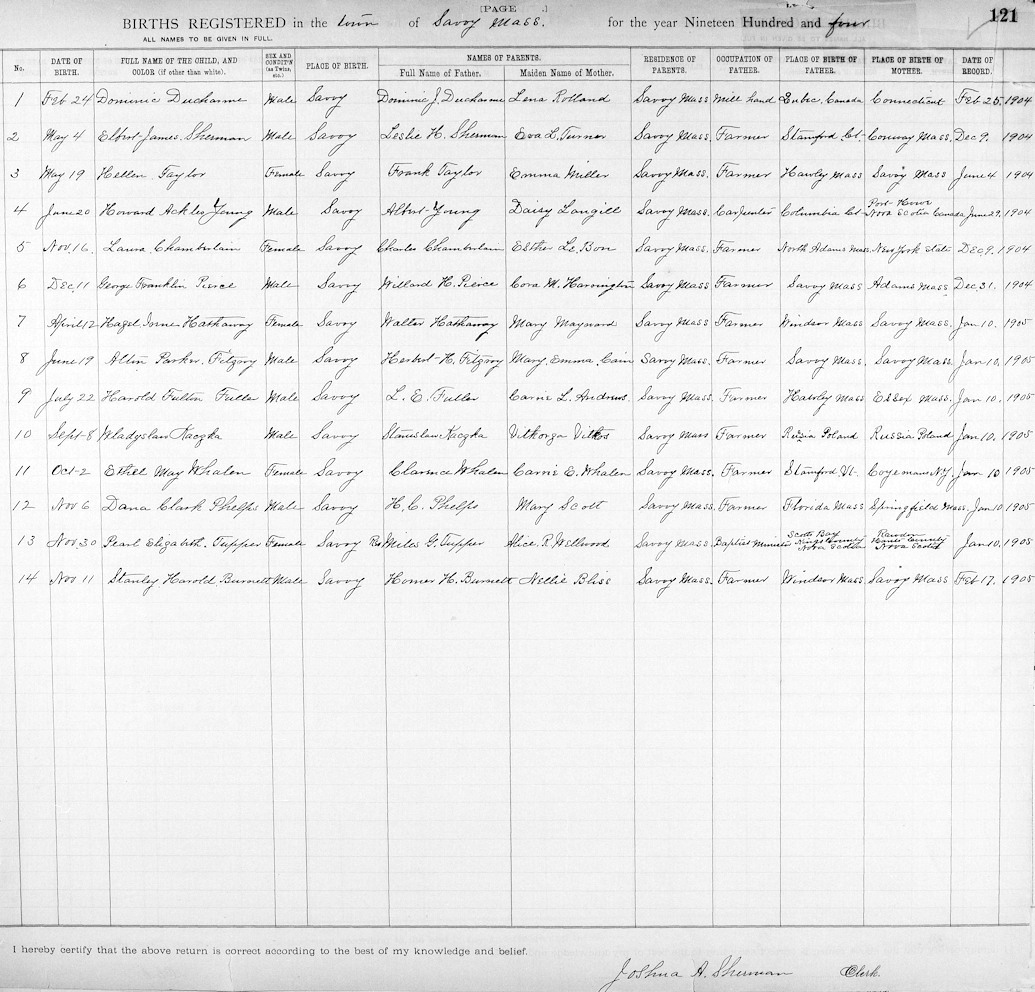 [PAGE .]
121
BIRTHS REGISTERED in the town of Savoy Mass. for the year Nineteen Hundred and four
ALL NAMES TO BE GIVEN IN FULL.
No. DATE OF BIRTH. FULL NAME OF THE CHILD, AND COLOR (if other than white). SEX AND CONDIT'N (as Twins, etc.) PLACE OF BIRTH. NAMES OF PARENTS. Full Name of Father. Maiden Name of Mother. RESIDENCE OF PARENTS. OCCUPATION OF FATHER. PLACE OF BIRTH OF FATHER. PLACE OF BIRTH OF MOTHER. DATE OF RECORD.
1 Feb 24 Dominic Ducharme Male Savoy Dominic J. Ducharme Lena Rolland Savoy Mass Mill hand Quebec, Canada Connecticut Feb 25, 1904
2 May 4 Elbert James Sherman Male Savoy Leslie H. Sherman Eva L. Turner Savoy Mass. Farmer Stamford Conway Mass. Dec 9. 1904
3 May 19 Hellen Taylor Female Savoy Frank Taylor Emma Miller Savoy Mass. Farmer Hawly Mass Savoy Mass June 4 1904
4 June 20 Howard Ackles Young Male Savoy Albert Young Daisy Langill Savoy Mass. Carpenter Columbia Ct Port Nova Scotia Canada June 29, 1904
5 Nov 16. Laura Chamberlain Female Savoy Charles Chamberlain Esther Le Bon Savoy Mass. Farmer North Adams Mass. New York State Dec. 9. 1904
6 Dec. 11 George Franklin Pierce Male Savoy Willard H. Pierce Cora M. Harrington Savoy Mass Farmer Savoy Mass Adams Mass Dec 31. 1904
7 April 12 Hazel Irene Hathaway Female Savoy Walter Hathaway Mary Maynard Savoy Mass. Farmer Windsor Mass Savoy Mass. Jan 10. 1905
8 June 19 Parker Fitzroy Male Savoy Herbert H. Fitzroy Mary Emma Cain Savoy Mass. Farmer Savoy Mass. Savoy Mass. Jan 10. 1905
9 July 22 Harold Fulton Fuller Male Savoy L. E. Fuller Carrie L. Andrews Savoy Mass. Farmer Hawley Mass Essex Mass. Jan 10. 1905
10 Sept 8 Wladyslaw Kaczka Male Savoy Stanislaw Kaczka Savoy Mass Farmer Russia Poland Russia Poland Jan 10. 1905
11 Oct 2 Ethel May Whalen Female Savoy Clarence Whalen Carrie E. Whalen Savoy Mass. Farmer Stamford Vt. Coyemans N.Y Jan 10 1905
12 Nov 6 Dana Clark Phelps Male Savoy H. C. Phelps Mary Scott Savoy Mass. Farmer Florida Mass Springfield Mass. Jan 10 1905
13 Nov. 30 Pearl Elizabeth Tupper Female Savoy Rev Miles G. Tupper Alice. R. Wellwood Savoy Mass. Baptist Minister Scotts Bay Kings County Nova Scotia Rawdon Hants County Nova Scotia Jan 10, 1905
14 Nov 11 Stanley Harold Burnett Male Savoy Homer H. Burnett Nellie Bliss Savoy Mass. Farmer Windsor Mass Savoy Mass Feb 17. 1905
I hereby certify that the above return is correct according to the best of my knowledge and belief.
Joshua A. Sherman Clerk.